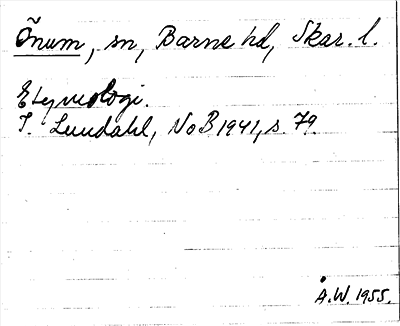 Önum, sn, Barne hd, Skar. l.
Etymologi.
I. Lundahl, NoB 1941, s. 79.
Å.W. 1955.